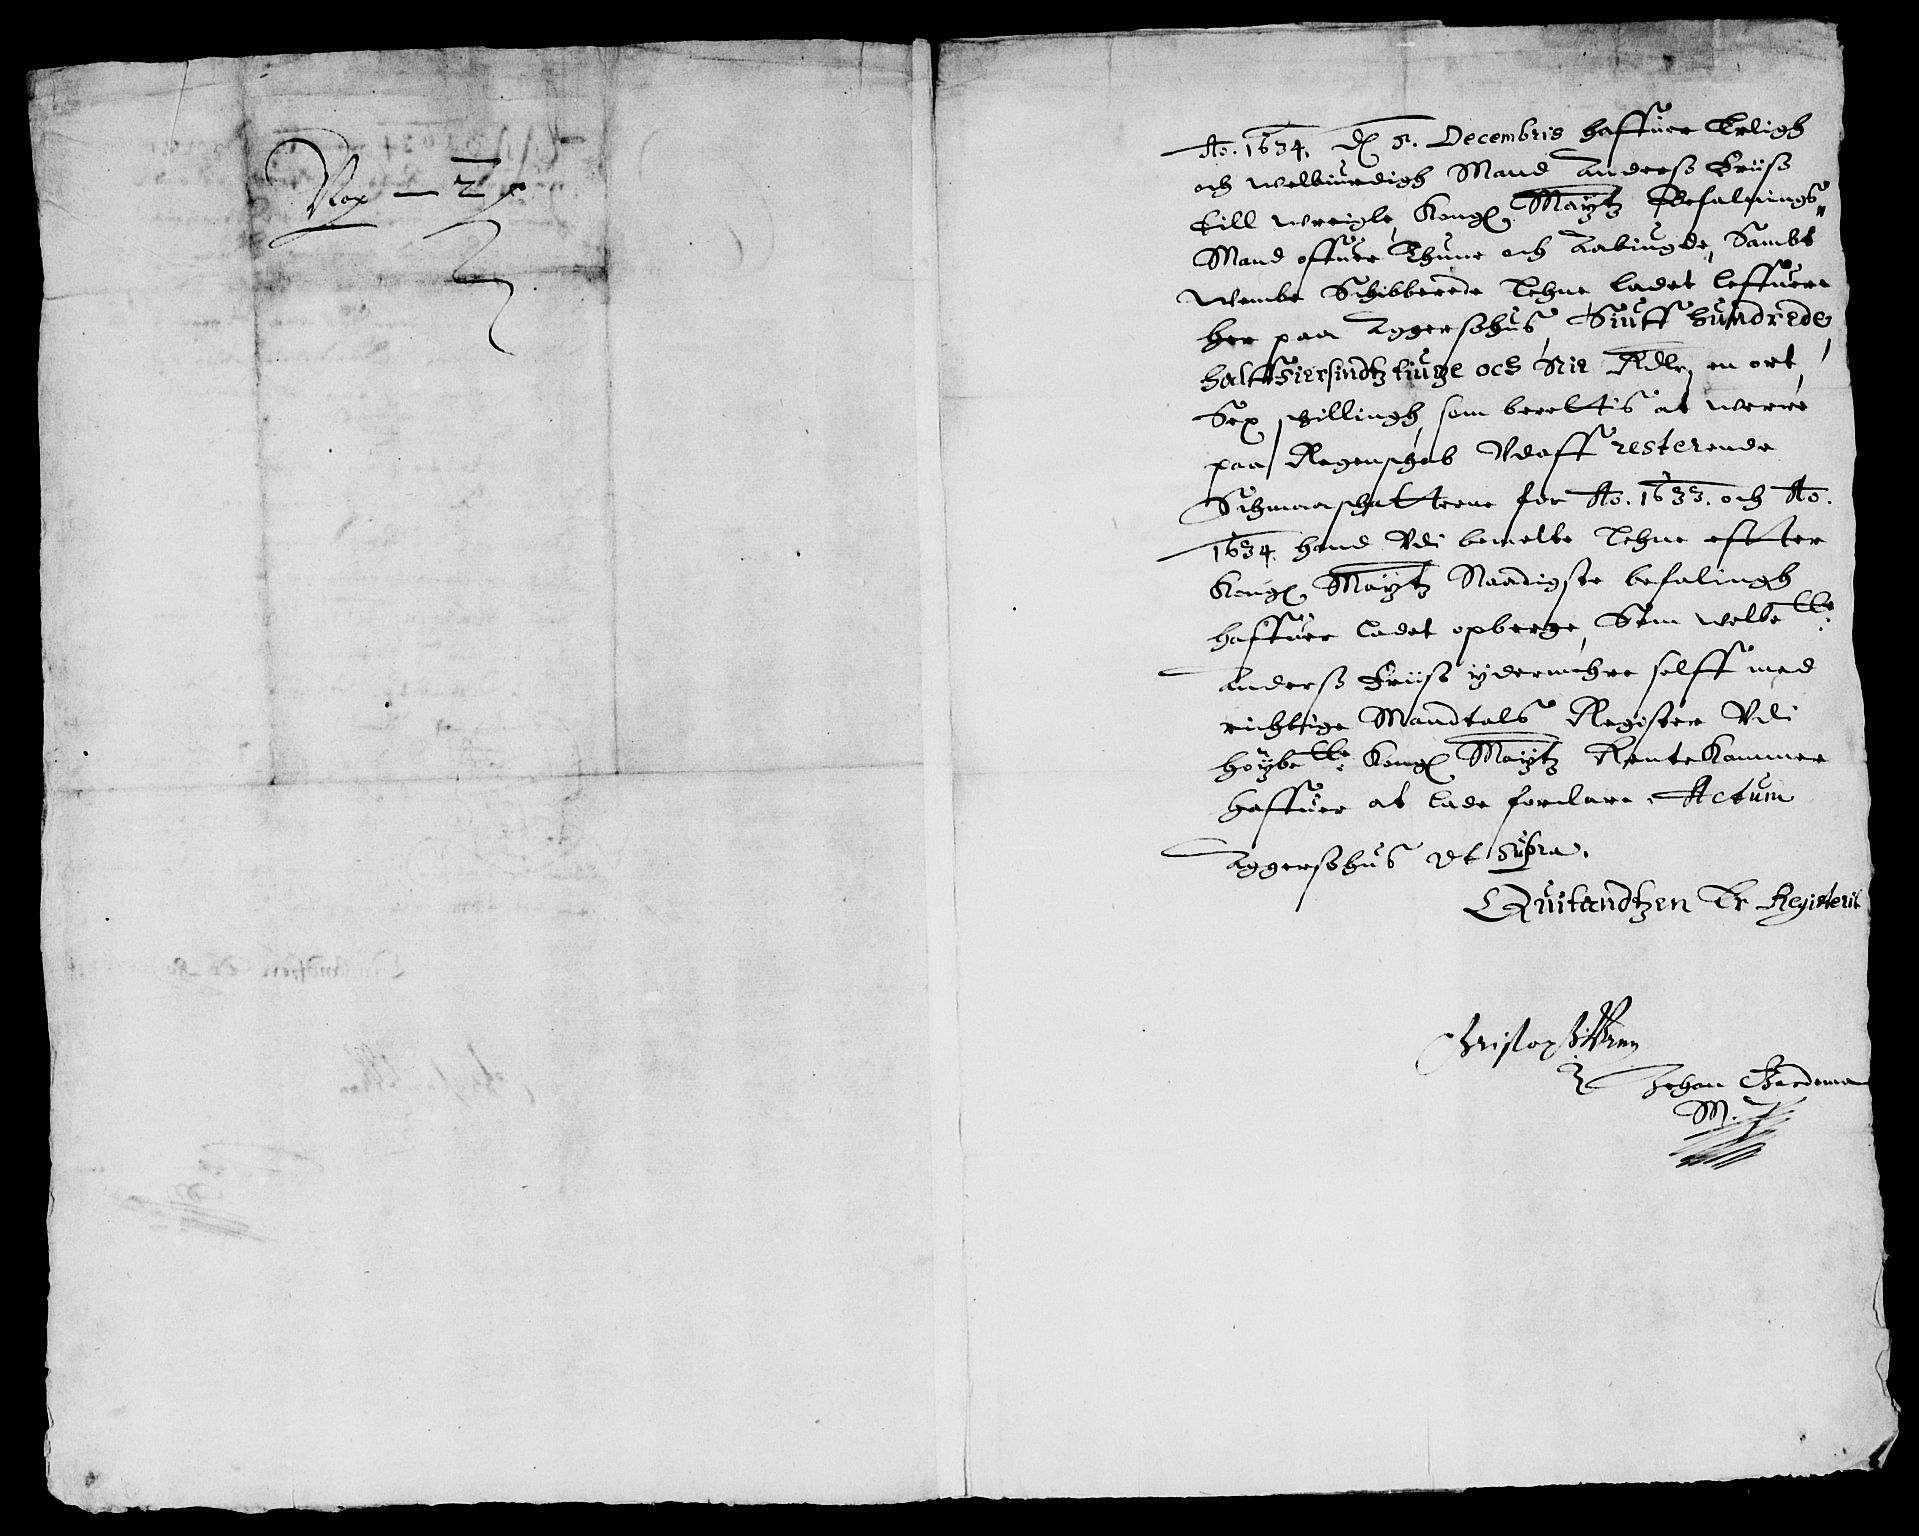 Nox — 2
Ao. 1634. d. 5. Decembris haffuer Erligh
och welbiurdigh Mand Anderss Friiss
till wreigle, Kongl. Maytz Befalnings¬
Mand offuer Thune och Aabiugde, Sambt
Wembe Schibberede Lehne ladet leffuere
her paa Aggersshus, Siuff hundrede
halfffiersindtztiuge och Nie Rdlr, en ort,
Sex schillingh, som berettis at werre
paa Regenschab Vdaff resterende
Schmaaschatterne for Ao. 1633. och Ao.
1634. hand Vdi bemelte Lehne effter
Kongl. Maytz Naadigste befalingh
haffuer ladet opberge, Som welbete:
Anderss Friiss ydermehre selff med
richtige Mandtals Register Vdi
høybete: Kongl Maytz Rente Kammer
haffuer at lade forclare. Actum
Aggersshus Vt supra.
Quitandtzen Er Registerit
Christopher
Johan Gardema
M.